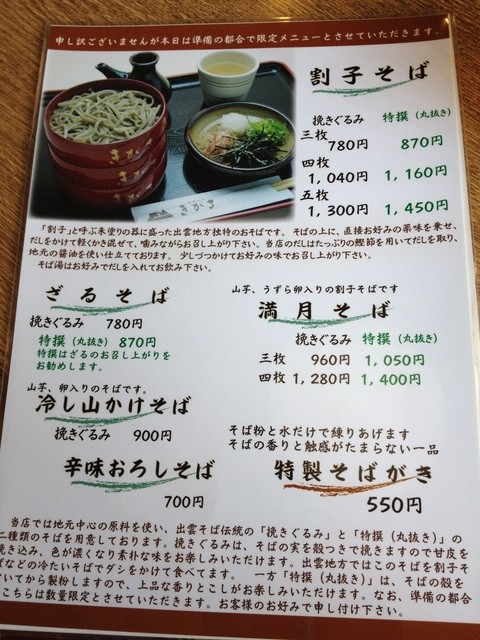 申し訳ございませんが本日は準備の都合で限定メニューとさせていただきます。
割子そば
挽きぐるみ 特撰（丸抜き）
三枚 780円 870円
四枚 1,040円 1,160円
五枚 1,300円 1,450円
きがる
きがる
「割子」と呼ぶ朱塗りの器に盛った出雲地方独特のおそばです。そばの上に、直接お好みの薬味を乗せ、
だしをかけて軽くかき混ぜて、噛みながらお召し上がり下さい。当店のだしはたっぷりの鰹節を用いてだしを取り、
地元の醤油を使い仕立てております。少しづつかけてお好みの味でお召し上がり下さい。
そば湯はお好みでだしを入れてお飲み下さい。
ざるそば
挽きぐるみ 780円
特撰（丸抜き）870円
特撰はざるのお召し上がりを
お勧めします。
山芋、うずら卵入りの割子そばです
満月そば
挽きぐるみ 特撰（丸抜き）
三枚 960円 1,050円
四枚 1,280円 1,400円
山芋、卵入りのそばです。
冷し山かけそば
挽きぐるみ 900円
辛味おろしそば
700円
そば粉と水だけで練りあげます
そばの香りと触感がたまらない一品
特製そばがき
550円
当店では地元中心の原料を使い、出雲そば伝統の「挽きぐるみ」と「特撰（丸抜き）」の
二種類のそばを用意しております。挽きぐるみは、そばの実を殻つきで挽きますので甘皮を
挽き込み、色が濃くなり素朴な味をお楽しみいただけます。出雲地方ではこのそばを割子そ
ばなどの冷たいそばでダシをかけて食べてます。 一方「特撰（丸抜き）」は、そばの殻を
むいてから製粉しますので、上品な香りとこしがお楽しみいただけます。なお、準備の都合
こちらは数量限定とさせていただきます。お客様のお好みで申し付け下さい。